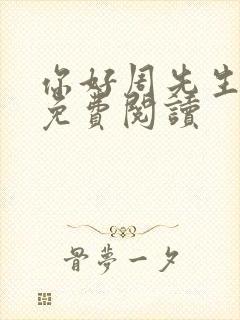 你好周先生
免費閱讀
骨夢一夕